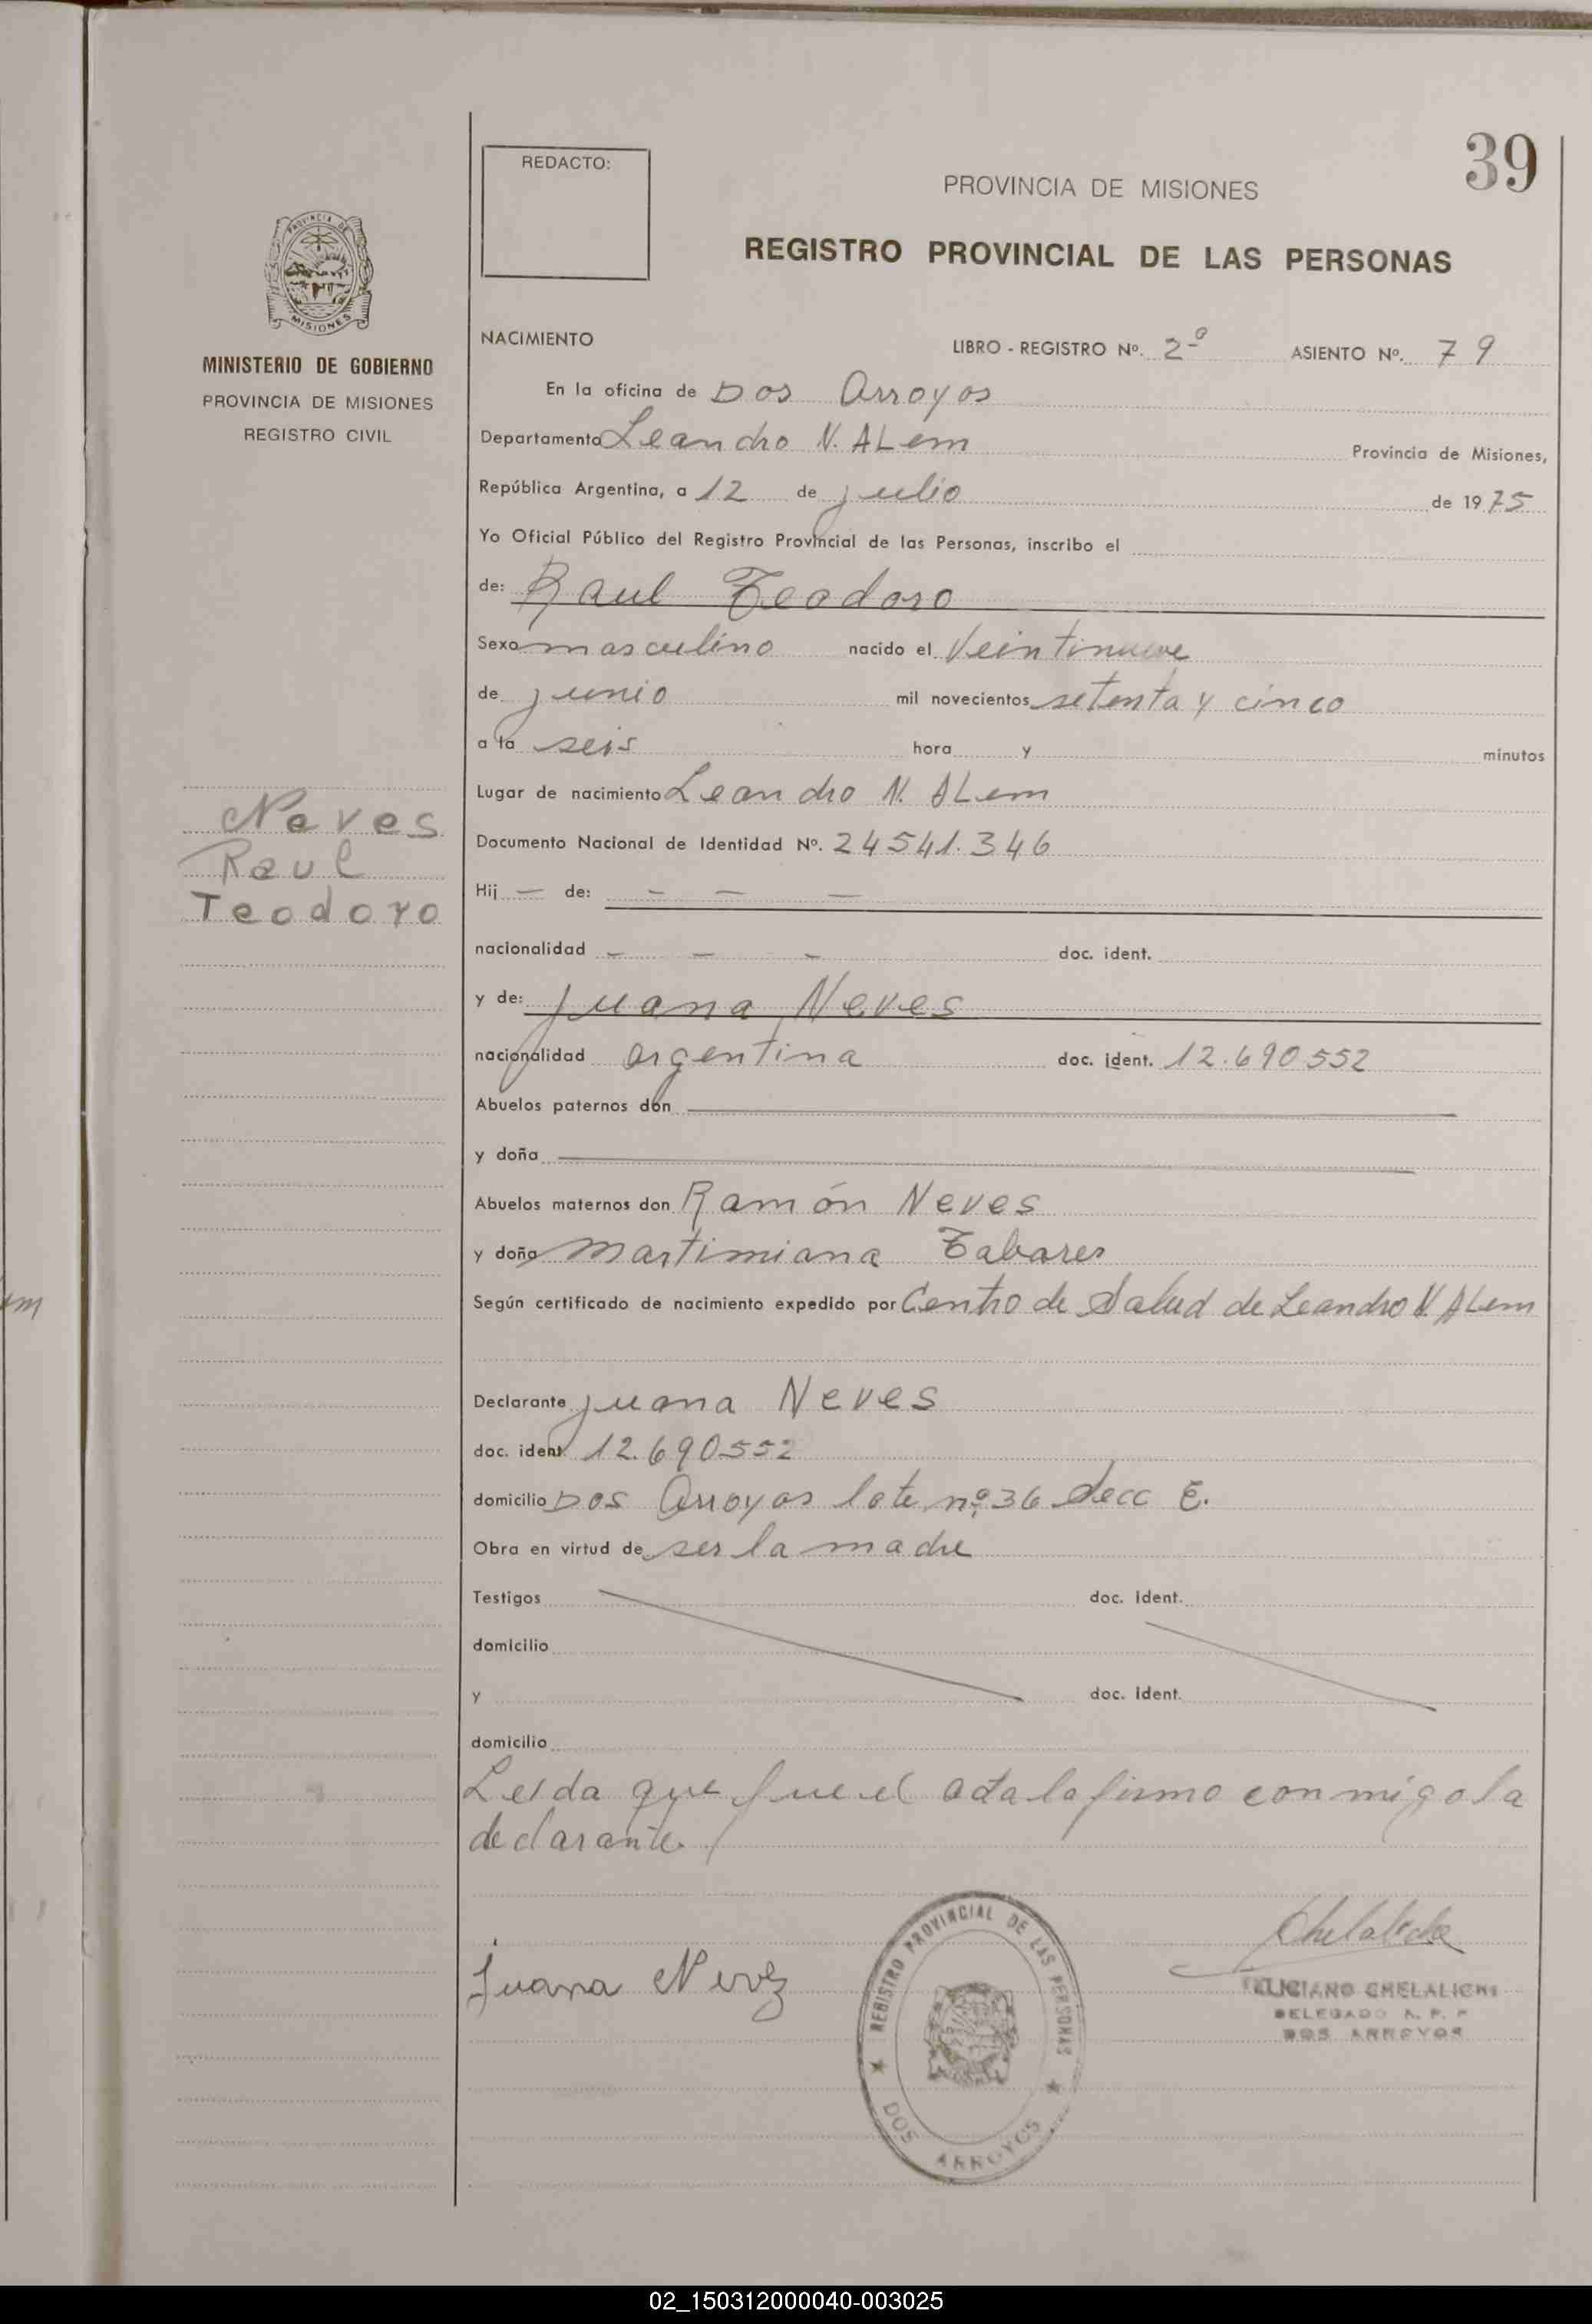 39
REDACTO:
PROVINCIA DE MISIONES
REGISTRO PROVINCIAL DE LAS PERSONAS
PROVINCIA DE
MISIONES
MINISTERIO DE GOBIERNO
PROVINCIA DE MISIONES
REGISTRO CIVIL
Neves
Raul
Teodoro
NACIMIENTO LIBRO - REGISTRO Nº. 2º ASIENTO Nº. 79
En la oficina de Dos Arroyos
Departamento Leandro N. ALem Provincia de Misiones,
República Argentina, a 12 de julio de 1975
Yo Oficial Público del Registro Provincial de las Personas, inscribo el
de: Raul Teodoro
Sexo masculino nacido el Veintinueve
de junio mil novecientos setenta y cinco
a la seis hora y minutos
Lugar de nacimiento Leandro N. ALem
Documento Nacional de Identidad Nº. 24541.346
Hij — de: — — —
nacionalidad — — — doc. ident.
y de: Juana Neves
nacionalidad argentina doc. ident. 12.690552
Abuelos paternos don
y doña
Abuelos maternos don Ramón Neves
y doña Martimiana Tabares
Según certificado de nacimiento expedido por Centro de Salud de Leandro N. ALem
Declarante Juana Neves
doc. ident. 12.690552
domicilio Dos Arroyos lote nº 36 Secc E.
Obra en virtud de ser la madre
Testigos doc. ident.
domicilio
y doc. ident.
domicilio
Leida que fue el acta la firmo conmigo la
declarante.
Juana Nevez
REGISTRO PROVINCIAL DE LAS PERSONAS
DOS ARROYOS
FELICIANO CHELALICHE
DELEGADO R. P. P
DOS ARROYOS
02_150312000040-003025